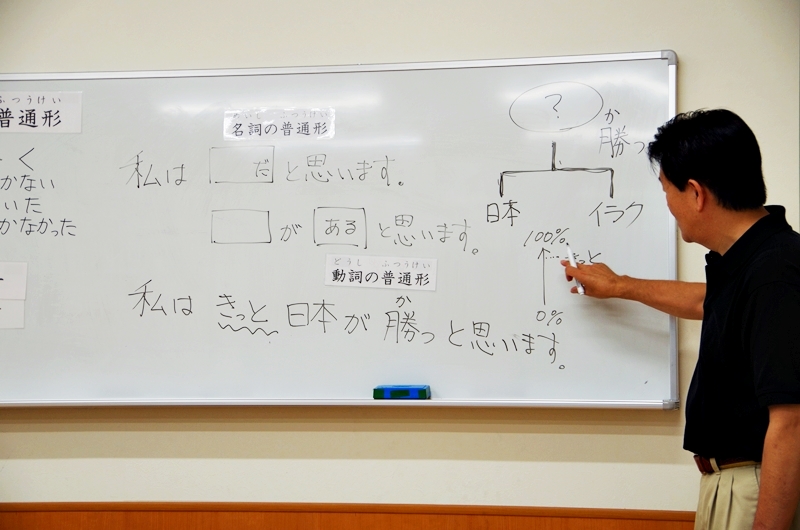 ふつうけい
普通形
く
かない
いた
かなかった
めいし ふつうけい
名詞の普通形
私は だ と思います。
が ある と思います。
どうし ふつうけい
動詞の普通形
か
私は きっと 日本が 勝つ と思います。
?
か
勝つ
日本 イラク
100%
きっと
0%